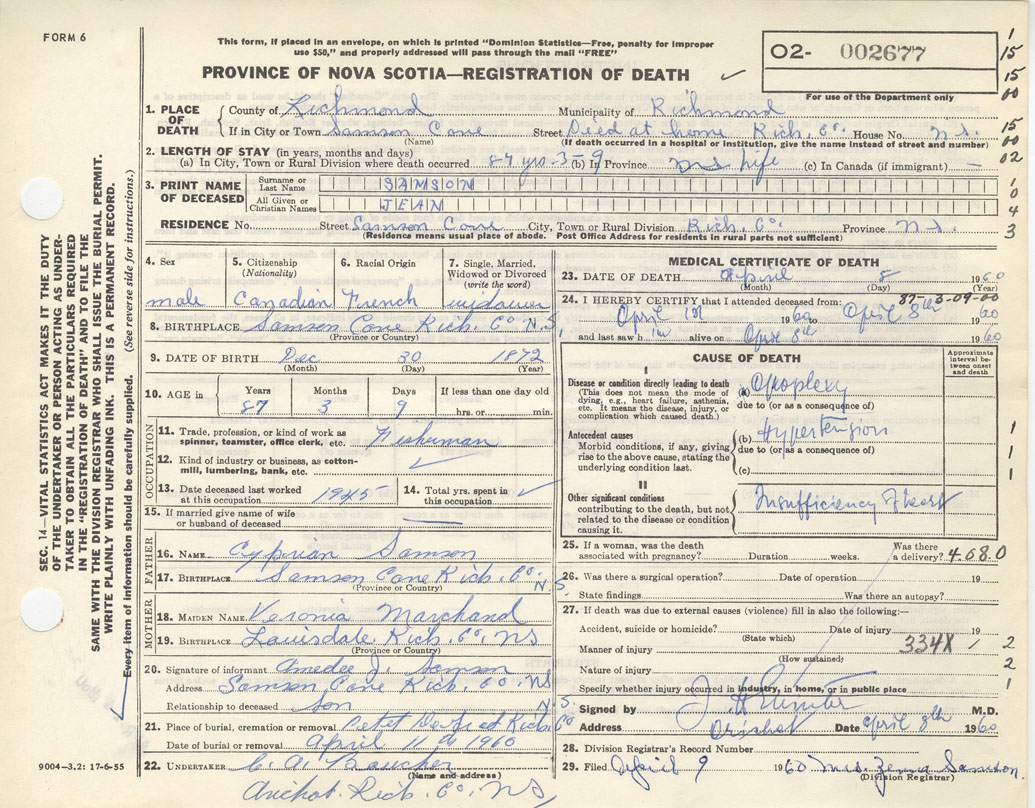 FORM 6
This form, if placed in an envelope, on which is printed "Dominion Statistics—Free, penalty for improper
use $50," and properly addressed will pass through the mail "FREE"
PROVINCE OF NOVA SCOTIA—REGISTRATION OF DEATH ✓
O2- 002677
For use of the Department only
1
15
15
00
15
00
02
1
0
4
3
SEC. 14—VITAL STATISTICS ACT MAKES IT THE DUTY
OF THE UNDERTAKER OR PERSON ACTING AS UNDER-
TAKER TO OBTAIN ALL THE PARTICULARS REQUIRED
IN THE "REGISTRATION OF DEATH" AND TO FILE THE
SAME WITH THE DIVISION REGISTRAR WHO SHALL ISSUE THE BURIAL PERMIT.
WRITE PLAINLY WITH UNFADING INK. THIS IS A PERMANENT RECORD.
Every item of information should be carefully supplied. (See reverse side for instructions.)
1. PLACE OF DEATH
County of Richmond Municipality of Richmond
If in City or Town Samson Cove Street Died at home Rich. Co. House No. N.S.
(Name) (If death occurred in a hospital or institution, give the name instead of street and number)
2. LENGTH OF STAY (in years, months and days)
(a) In City, Town or Rural Division where death occurred 87 yrs-3-9 (b) In Province life (c) In Canada (if immigrant) —
3. PRINT NAME OF DECEASED
Surname or Last Name SAMSON
All Given or Christian Names JEAN
RESIDENCE No. Street Samson Cove City, Town or Rural Division Rich. Co. Province N.S.
(Residence means usual place of abode. Post Office Address for residents in rural parts not sufficient)
4. Sex 5. Citizenship 6. Racial Origin 7. Single, Married,
(Nationality) Widowed or Divorced
(write the word)
male Canadian French widower
8. BIRTHPLACE Samson Cove Rich. Co N.S.
(Province or Country)
9. DATE OF BIRTH Dec 30 1872
(Month) (Day) (Year)
10. AGE in Years Months Days If less than one day old
87 3 9 hrs. or min.
OCCUPATION
11. Trade, profession, or kind of work as
spinner, teamster, office clerk, etc. Fisherman
12. Kind of industry or business, as cotton-
mill, lumbering, bank, etc. ✓
13. Date deceased last worked
at this occupation 1945
14. Total yrs. spent in
this occupation ✓
15. If married give name of wife
or husband of deceased —
FATHER
16. NAME Cyprian Samson
17. BIRTHPLACE Samson Cove Rich. Co. N.S.
(Province or Country)
MOTHER
18. MAIDEN NAME Veronia Marchand
19. BIRTHPLACE Louisdale Rich. Co NS
(Province or Country)
20. Signature of informant Amedee J. Samson
Address Samson Cove Rich. Co. NS
Relationship to deceased son
21. Place of burial, cremation or removal Petit De Grat Rich Co N.S.
Date of burial or removal April 11 1960
22. UNDERTAKER C. A. Boucher
(Name and address)
Arichat. Rich. Co. NS
9004—3.2: 17-6-55
MEDICAL CERTIFICATE OF DEATH
23. DATE OF DEATH April 8 1960
(Month) (Day) (Year)
87-3-09-00
24. I HEREBY CERTIFY that I attended deceased from:
April 1st 1960 to April 8th 1960
and last saw him alive on April 8th 1960
CAUSE OF DEATH
Approximate interval between onset and death
I
Disease or condition directly leading to death
(This does not mean the mode of
dying, e.g., heart failure, asthenia,
etc. It means the disease, injury, or
complication which caused death.)
(a) Apoplexy
due to (or as a consequence of)
Antecedent causes
Morbid conditions, if any, giving
rise to the above cause, stating the
underlying condition last.
(b) Hypertension
due to (or as a consequence of)
(c)
1
1
1
II
Other significant conditions
contributing to the death, but not
related to the disease or condition
causing it.
Insufficiency of heart
25. If a woman, was the death
associated with pregnancy? Duration weeks. Was there
a delivery? 4.68.0
26. Was there a surgical operation? Date of operation 19
State findings Was there an autopsy?
27. If death was due to external causes (violence) fill in also the following:—
Accident, suicide or homicide? Date of injury 19
(State which)
Manner of injury 334X
(How sustained)
Nature of injury
1 2
2
1
Specify whether injury occurred in industry, in home, or in public place
Signed by M.D.
Address Arichat Date April 8th 1960
28. Division Registrar's Record Number
29. Filed April 9 1960 Mrs. Zema Samson.
(Division Registrar)